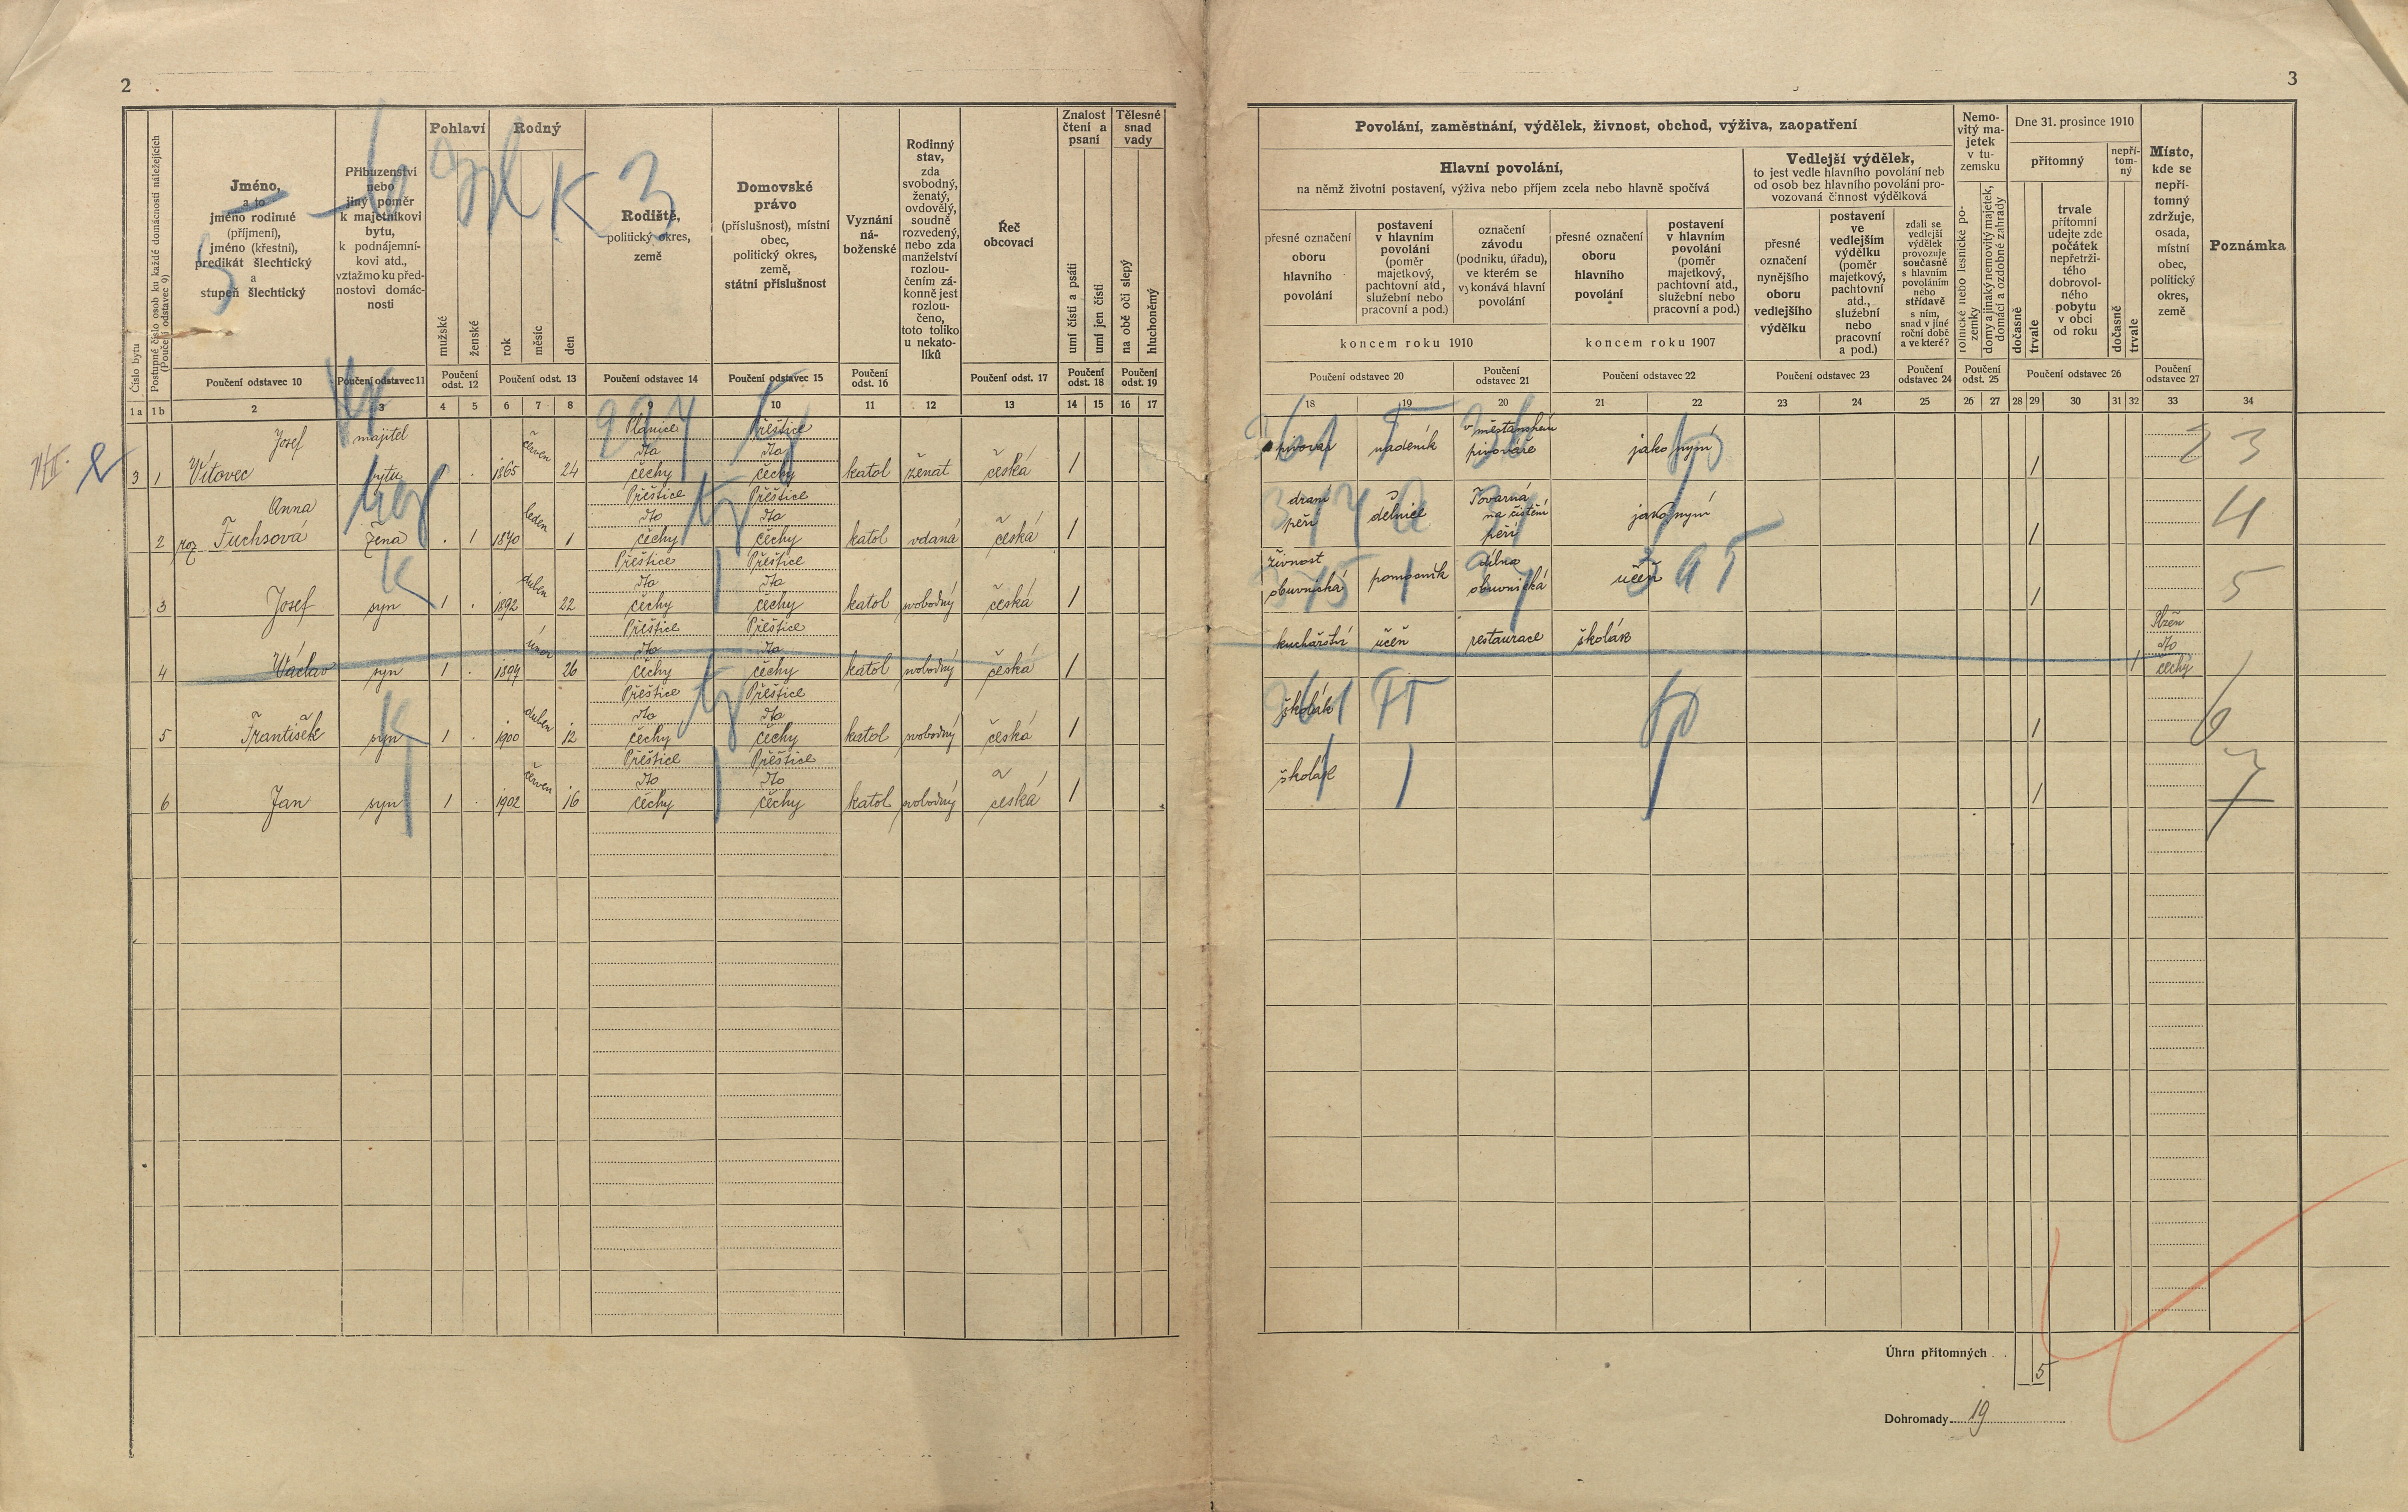 2
3
Číslo bytu
Postupné číslo osob ku každé domácnosti náležejících
(Poučení odstavec 9)
Jméno,
a to
jméno rodinné
(příjmení),
jméno (křestní),
predikát šlechtický
a
stupeň šlechtický
Příbuzenství
nebo
jiný poměr
k majetníkovi
bytu,
k podnájemní-
kovi atd.,
vztažmo ku před-
nostovi domác-
nosti
Pohlaví
mužské
ženské
Rodný
rok
měsíc
den
Rodiště,
politický okres,
země
Domovské
právo
(příslušnost), místní
obec,
politický okres,
země,
státní příslušnost
Vyznání
ná-
boženské
Rodinný
stav,
zda
svobodný,
ženatý,
ovdovělý,
soudně
rozvedený,
nebo zda
manželství
rozlou-
čením zá-
konně jest
rozlou-
čeno,
toto toliko
u nekato-
líků
Řeč
obcovací
Znalost
čtení a
psaní
umí čísti a psáti
umí jen čísti
Tělesné
snad
vady
na obě oči slepý
hluchoněmý
Poučení odstavec 10
Poučení odstavec 11
Poučení
odst. 12
Poučení odst. 13
Poučení odstavec 14
Poučení odstavec 15
Poučení
odst. 16
Poučení odst. 17
Poučení
odst. 18
Poučení
odst. 19
1a 1b 2 3 4 5 6 7 8 9 10 11 12 13 14 15 16 17
Povolání, zaměstnání, výdělek, živnost, obchod, výživa, zaopatření
Hlavní povolání,
na němž životní postavení, výživa nebo příjem zcela nebo hlavně spočívá
přesné označení
oboru
hlavního
povolání
postavení
v hlavním
povolání
(poměr
majetkový,
pachtovní atd.,
služební nebo
pracovní a pod.)
označení
závodu
(podniku, úřadu),
ve kterém se
vykonává hlavní
povolání
přesné označení
oboru
hlavního
povolání
postavení
v hlavním
povolání
(poměr
majetkový,
pachtovní atd.,
služební nebo
pracovní a pod.)
koncem roku 1910
koncem roku 1907
Vedlejší výdělek,
to jest vedle hlavního povolání neb
od osob bez hlavního povolání pro-
vozovaná činnost výdělková
přesné
označení
nynějšího
oboru
vedlejšího
výdělku
postavení
ve
vedlejším
výdělku
(poměr
majetkový,
pachtovní
atd.,
služební
nebo
pracovní
a pod.)
zdali se
vedlejší
výdělek
provozuje
současně
s hlavním
povoláním
nebo
střídavě
s ním,
snad v jiné
roční době
a ve které?
Nemo-
vitý ma-
jetek
v tu-
zemsku
rolnické nebo lesnické po-
zemky
domy a jinaký nemovitý majetek,
domácí a ozdobné zahrady
Dne 31. prosince 1910
přítomný
nepří-
tom-
ný
dočasně
trvale
trvale
přítomní
udejte zde
počátek
nepřetrži-
tého
dobrovol-
ného
pobytu
v obci
od roku
dočasně
trvale
Místo,
kde se
nepří-
tomný
zdržuje,
osada,
místní
obec,
politický
okres,
země
Poznámka
Poučení odstavec 20
Poučení
odstavec 21
Poučení odstavec 22
Poučení odstavec 23
Poučení
odstavec 24
Poučení
odst. 25
Poučení odstavec 26
Poučení
odstavec 27
18 19 20 21 22 23 24 25 26 27 28 29 30 31 32 33 34
Josef majitel červen Plánice Přeštice v měšťanském
dto dto pivovar nádeník pivováře jako nyní
3 1 Vítovec bytu 1 . 1865 24 čechy čechy katol ženat česká 1 1 3
Anna leden Přeštice Přeštice draní Továrna
dto dto peří dělnice na čistění jako nyní
2 roz Fuchsová žena . 1 1870 1 čechy čechy katol vdaná česká 1 peří 1 4
duben Přeštice Přeštice živnost dílna
dto dto obuvnická pomocník obuvnická učeň
3 Josef syn 1 . 1892 22 čechy čechy katol svobodný česká 1 1 5
únor Přeštice Přeštice Plzeň
dto dto kuchařství učeň restaurace školák dto
4 Václav syn 1 . 1897 26 čechy čechy katol svobodný česká 1 1 čechy
duben Přeštice Přeštice
dto dto školák
5 František syn 1 . 1900 12 čechy čechy katol svobodný česká 1 1 6
červen Přeštice Přeštice
dto dto školák
6 Jan syn 1 . 1902 16 čechy čechy katol svobodný česká 1 1 7
Úhrn přítomných 5
Dohromady 19